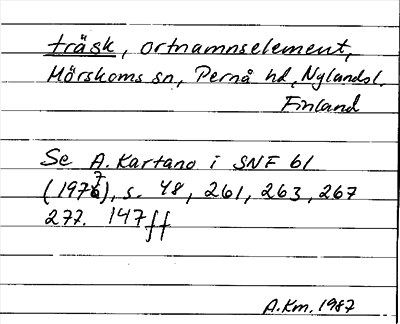 träsk, ortnamnselement,
Mörskoms sn, Pernå hd, Nylandsl.
Finland
Se A. Kartano i SNF 61
(1977), s. 48, 261, 263, 267
277. 147ff
A.Km. 1987